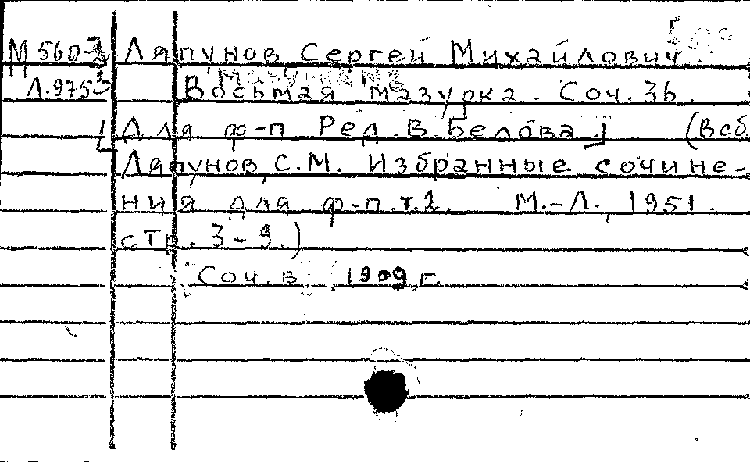 М560-2 Ляпунов Сергей Михайлович.
Л.975 Восьмая мазурка. Соч. 36.
[Для ф-п. Ред. В. Белова.] (В сб.
Ляпунов, С.М. Избранные сочине-
ния для ф-п. т.2. М.-Л., 1951.
стр. 3-9.)
Соч. в 1909 г.